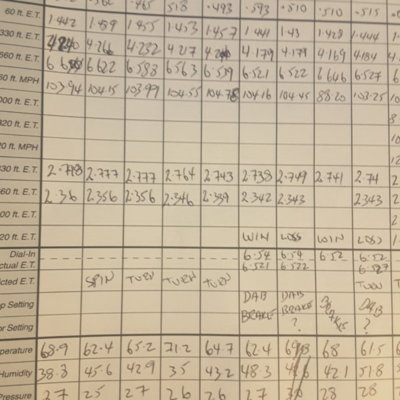 .485 518 .493 .593 .510 .510 .515
60 ft. E.T. 1.442 1.439 1.455 1.453 1.457 1.441 1.43 1.428 1.444
330 ft. E.T. 4.266 4.232 4.217 4.179 4.179 4.169 4.184
660 ft. E.T. 6.622 6.588 6.563 6.539 6.521 6.522 6.646 6.527
60 ft. MPH 103.94 104.15 103.99 104.55 104.78 104.16 104.45 88.20 103.25
000 ft. E.T.
20 ft. E.T.
20 ft. MPH
330 E.T. 2.777 2.777 2.764 2.743 2.738 2.749 2.741 2.74
660 E.T. 2.36 2.356 2.356 2.346 2.339 2.342 2.343 2.343
00 ft. E.T.
20 ft. E.T. WIN LOSS WIN LOSS
Dial-In 6.54 6.54 6.52 6.52
ctual E.T. 6.521 6.522 6.527
cted E.T. SPIN TURN TURN TURN TURN
op Setting DAB BRAKE DAB BRAKE ? DAB ?
or Setting
perature 68.9 62.4 65.2 71.2 64.7 62.4 68 61.5
Humidity 38.3 45.6 42.9 35 43.2 48.3 42.1 51.8
Pressure 27 25 27 26 26 27 28 28